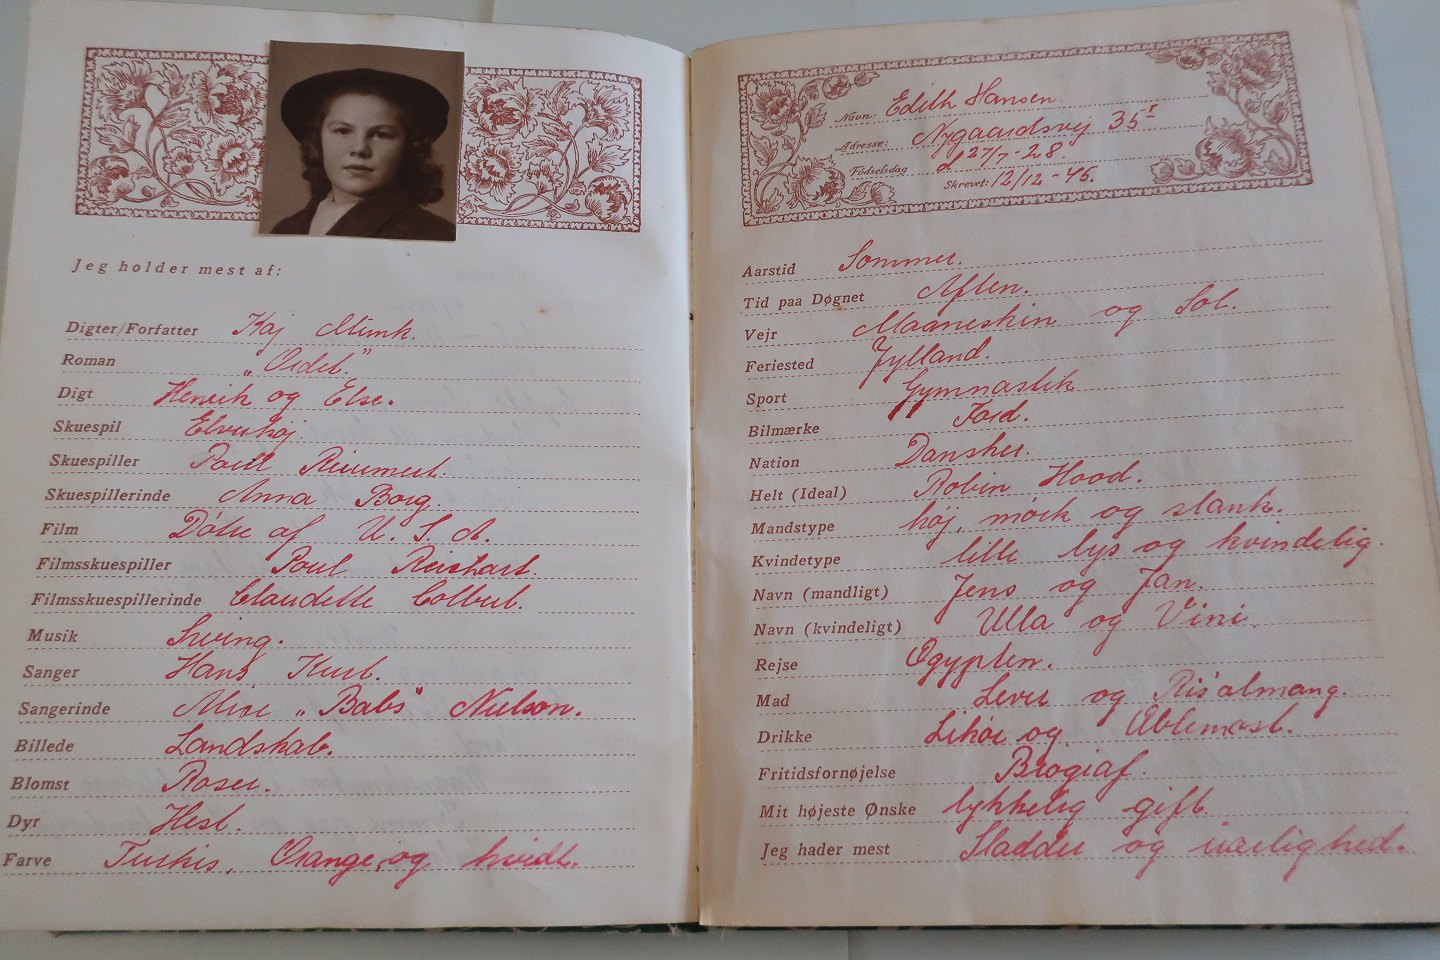 Jeg holder mest af:
Digter/Forfatter Kaj Munk.
Roman „Ordet.”
Digt Henrik og Else.
Skuespil Elverhøj.
Skuespiller Poul Reumert.
Skuespillerinde Anna Borg.
Film Døtre af U. S. A.
Filmsskuespiller Poul Reichart.
Filmsskuespillerinde Claudette Colbert.
Musik Swing.
Sanger Hans Kurt.
Sangerinde Alice „Babs” Nielson.
Billede Landskab.
Blomst Roser.
Dyr Hest.
Farve Turkis, Orange, og hvidt.
Navn: Edith Hansen.
Adresse: Nygaardsvej 35 I
Fødselsdag d 27/7-28.
Skrevet: 12/12-45.
Aarstid Sommer.
Tid paa Døgnet Aften.
Vejr Maaneskin og Sol.
Feriested Jylland.
Sport Gymnastik
Bilmærke Ford.
Nation Dansker.
Helt (Ideal) Robin Hood.
Mandstype høj, mørk og slank.
Kvindetype lille lys og kvindelig.
Navn (mandligt) Jens og Jan.
Navn (kvindeligt) Ulla og Vini.
Rejse Ægypten.
Mad Lever og Ris'almang.
Drikke Likør og Æblemost.
Fritidsfornøjelse Biograf.
Mit højeste Ønske lykkelig gift
Jeg hader mest Sladder og uærlighed.